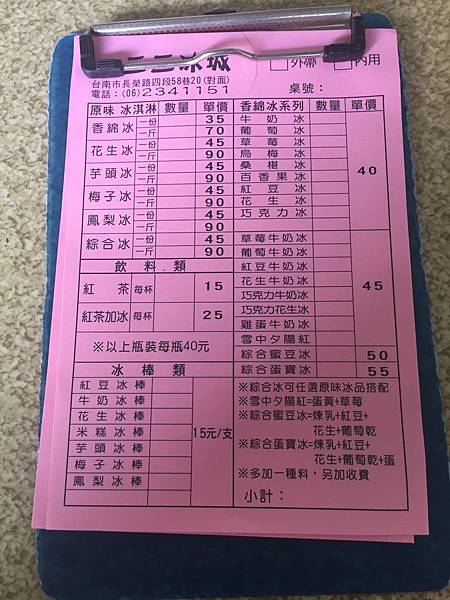 冰城
□外帶 □內用
台南市長榮路四段58巷20(對面)
電話：(06)2341151
桌號：
原味 冰淇淋 數量 單價
香綿冰 一份 35
一斤 70
花生冰 一份 45
一斤 90
芋頭冰 一份 45
一斤 90
梅子冰 一份 45
一斤 90
鳳梨冰 一份 45
一斤 90
綜合冰 一份 45
一斤 90
飲料類
紅茶 每杯 15
紅茶加冰 每杯 25
※以上瓶裝每瓶40元
冰棒類
紅豆冰棒
牛奶冰棒
花生冰棒
米糕冰棒
芋頭冰棒
梅子冰棒
鳳梨冰棒
15元/支
香綿冰系列 數量 單價
牛奶冰
葡萄冰
草莓冰
烏梅冰
桑椹冰
百香果冰
紅豆冰
花生冰
巧克力冰
40
草莓牛奶冰
葡萄牛奶冰
紅豆牛奶冰
花生牛奶冰
巧克力牛奶冰
巧克力花生冰
雞蛋牛奶冰
雪中夕陽紅
45
綜合蜜豆冰 50
綜合蛋寶冰 55
※綜合冰可任選原味冰品搭配
※雪中夕陽紅=蛋黃+草莓
※綜合蜜豆冰=煉乳+紅豆+
花生+葡萄乾
※綜合蛋寶冰=煉乳+紅豆+
花生+葡萄乾+蛋
※多加一種料，另加收費
小計：